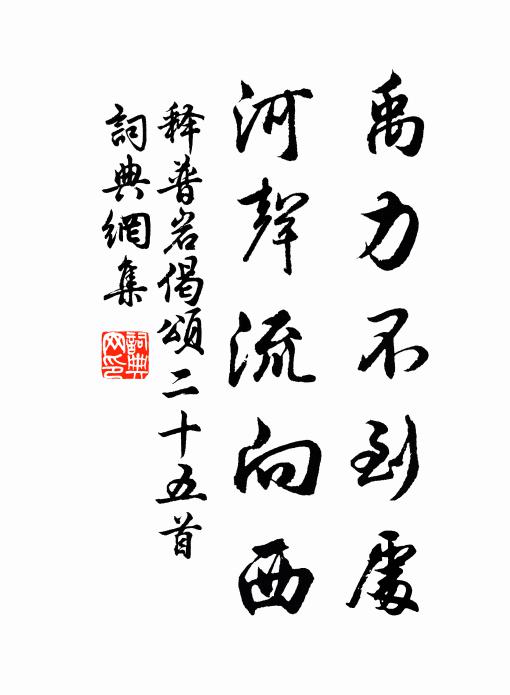 禹力不到處
河聲流向西
释普岩偈頌二十五首
詞典網集
詞典网印